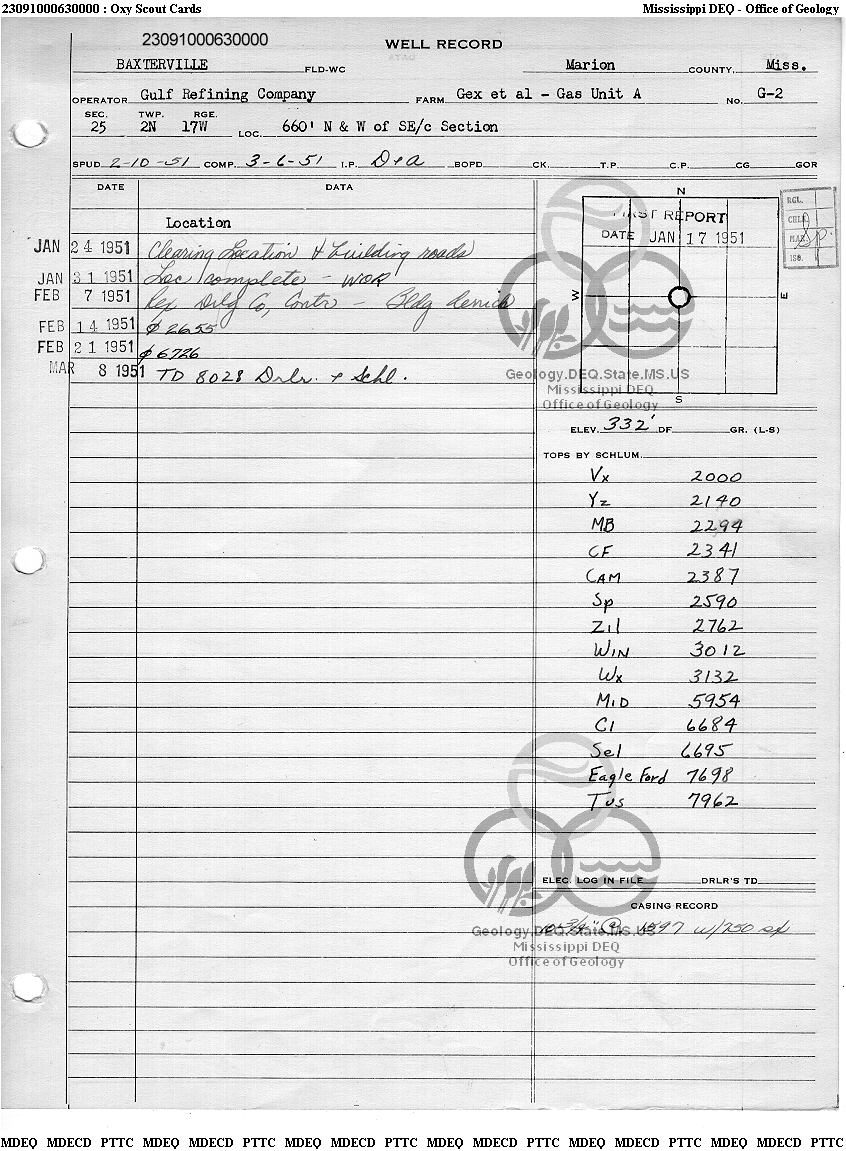 23091000630000 : Oxy Scout Cards Mississippi DEQ - Office of Geology
23091000630000
WELL RECORD
BAXTERVILLE FLD-WC Marion COUNTY. Miss.
OPERATOR Gulf Refining Company FARM Gex et al - Gas Unit A No. G-2
SEC. TWP. RGE.
25 2N 17W LOC. 660' N & W of SE/c Section
SPUD 2-10-51 COMP. 3-6-51 I.P. D+A BOPD CK. T.P. C.P. CG GOR
DATE DATA
Location
JAN 24 1951 Clearing Location & building roads
JAN 31 1951 Loc complete - WOR
FEB 7 1951 Rex Drlg Co, Contr - Bldg derrick
FEB 14 1951 ϕ 2655
FEB 21 1951 ϕ 6726
MAR 8 1951 TD 8028 Drlr. + Schl.
N
FIRST REPORT
DATE JAN 17 1951
W E
S
RGL.
CHEL
MAR Sp.
ISO.
Geology.DEQ.State.MS.US
Mississippi DEQ
Office of Geology
ELEV. 332' DF GR. (L-S)
TOPS BY SCHLUM.
Vx 2000
Yz 2140
MB 2294
CF 2341
CAM 2387
Sp 2590
Zil 2762
WIN 3012
Wx 3132
MID 5954
Cl 6684
Sel 6695
Eagle Ford 7698
Tus 7962
ELEC. LOG IN FILE DRLR'S TD
CASING RECORD
10-3/4" @ 1597 w/750 sx
Geology.DEQ.State.MS.US
Mississippi DEQ
Office of Geology
MDEQ MDECD PTTC MDEQ MDECD PTTC MDEQ MDECD PTTC MDEQ MDECD PTTC MDEQ MDECD PTTC MDEQ MDECD PTTC